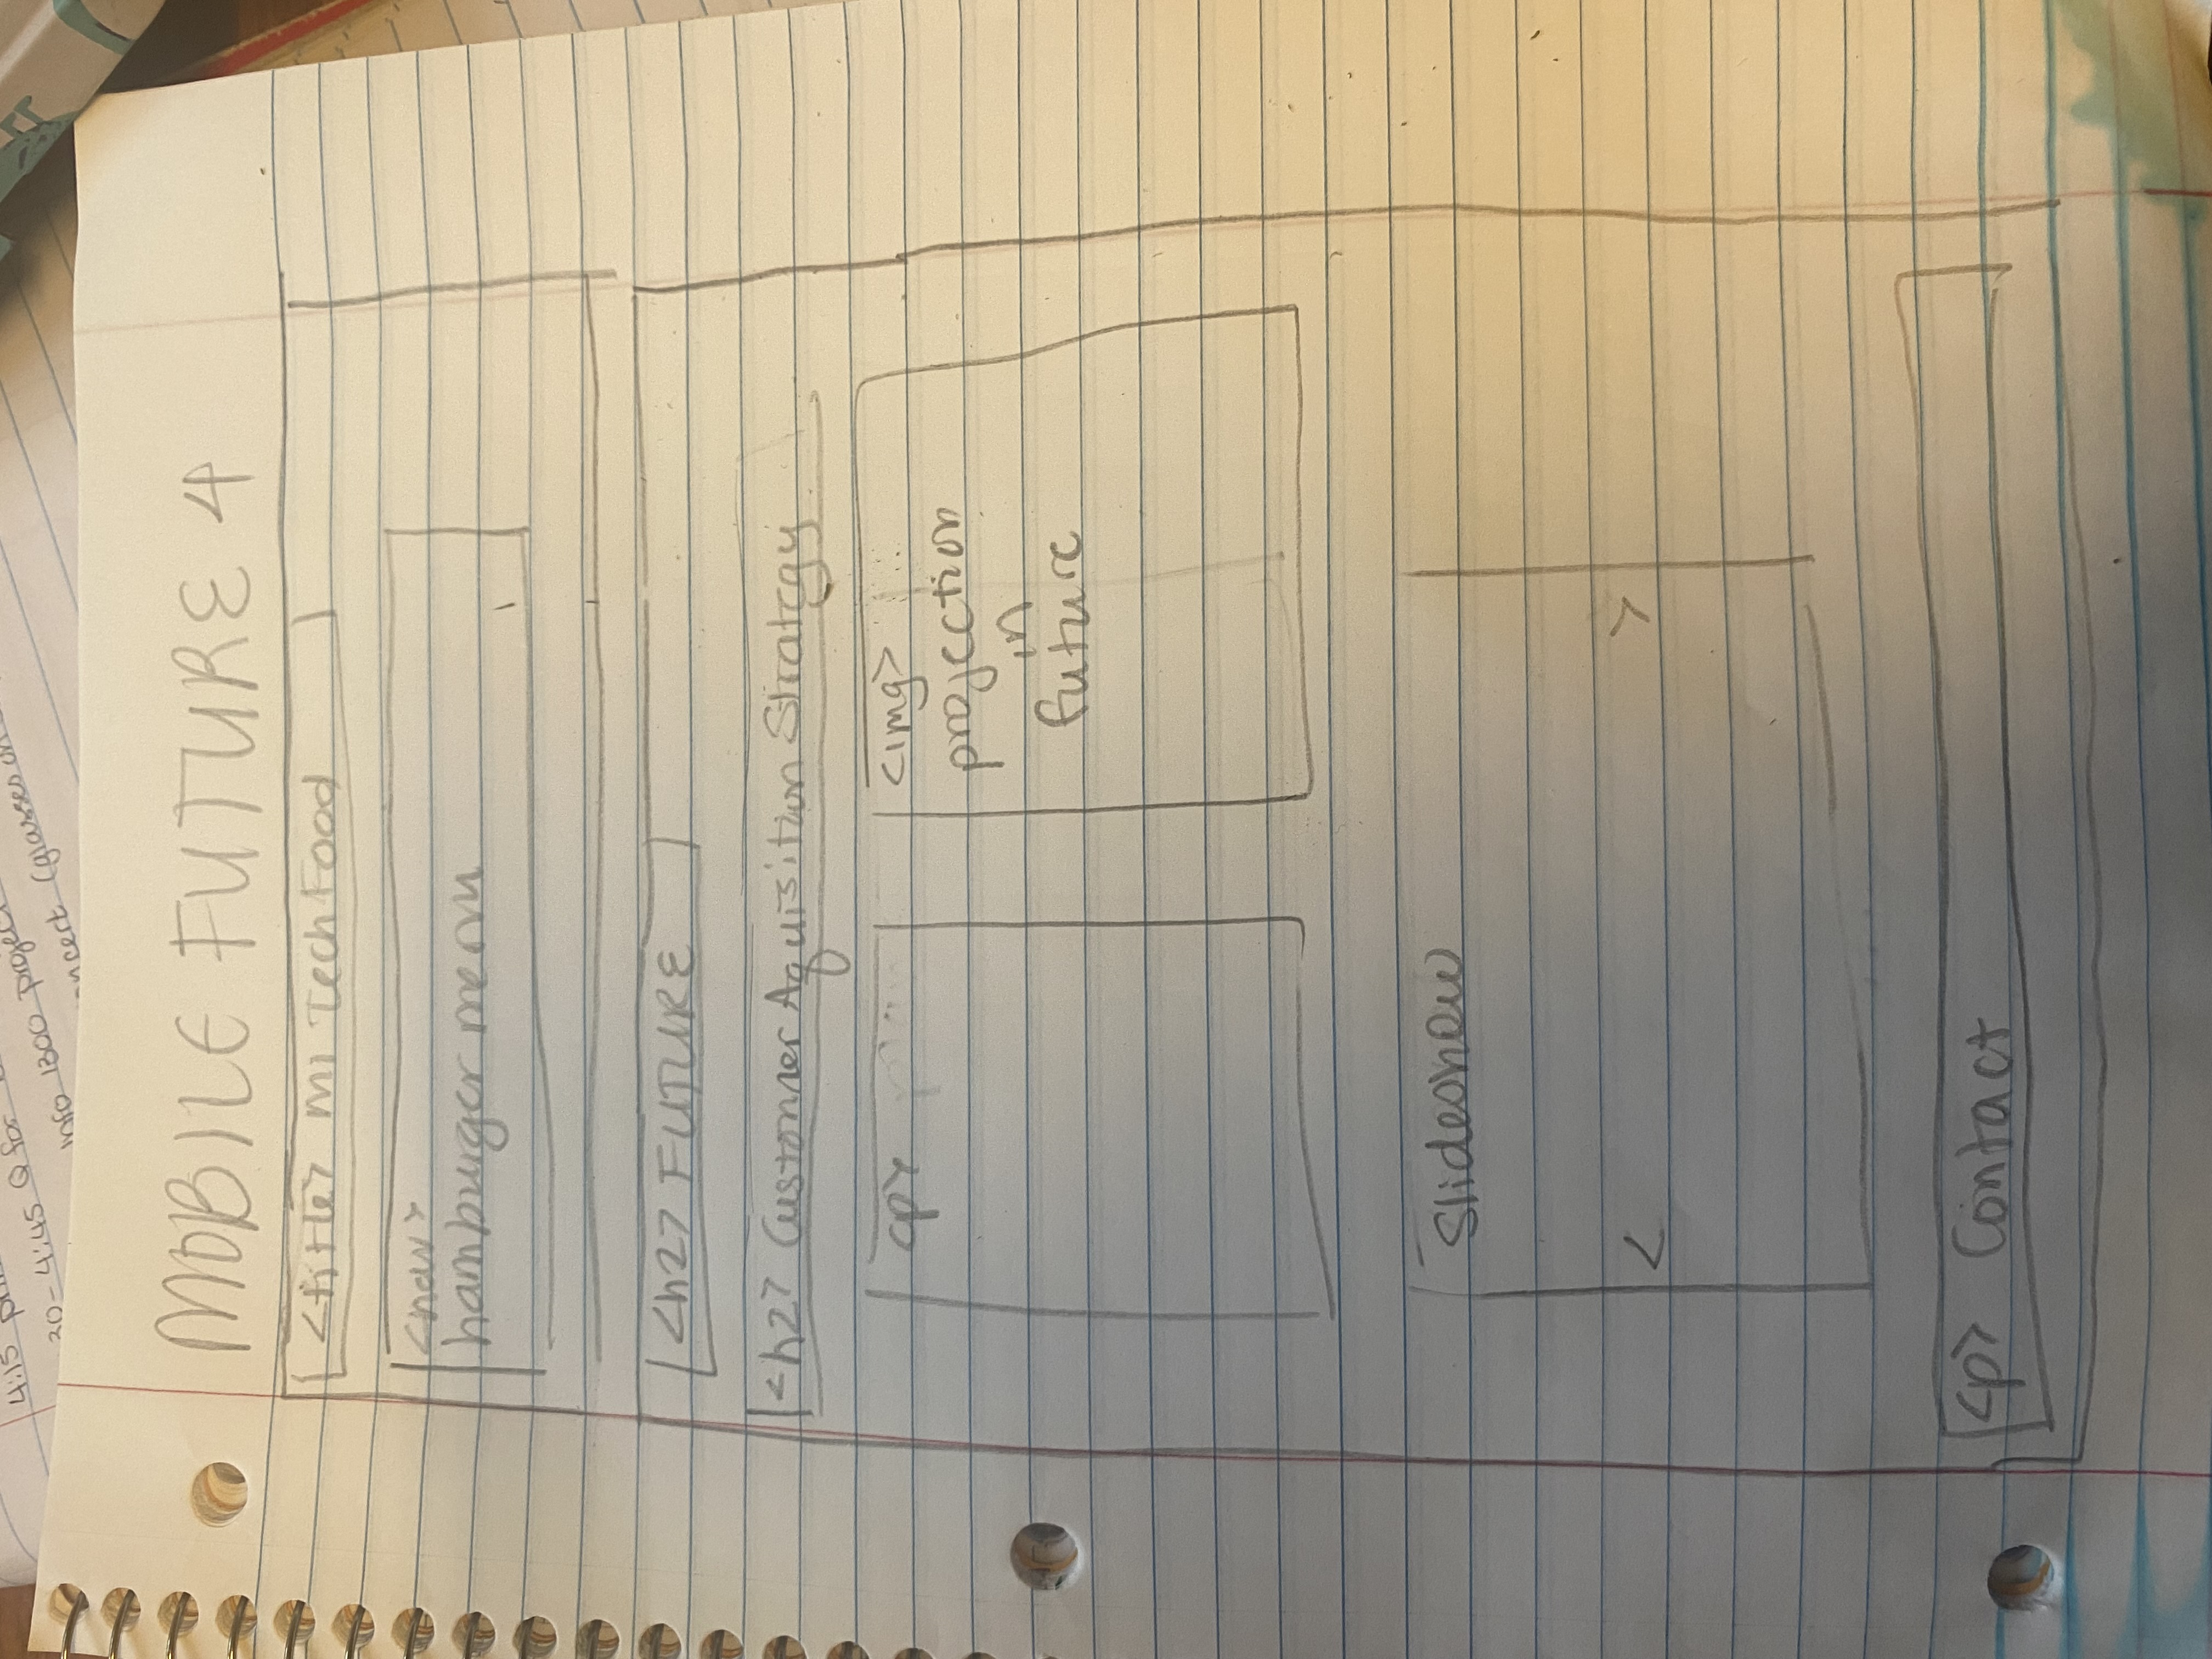 4:15
30-4:45 Q for
info 1300 project
concert (glasses on
MOBILE FUTURE 4
<title> Mi Tech Food
<nav>
hamburger menu
<h2> FUTURE
<h2> Customer Aquisition Strategy
<p>
<img>
projection
in
future
Slideshow
< >
<p> Contact